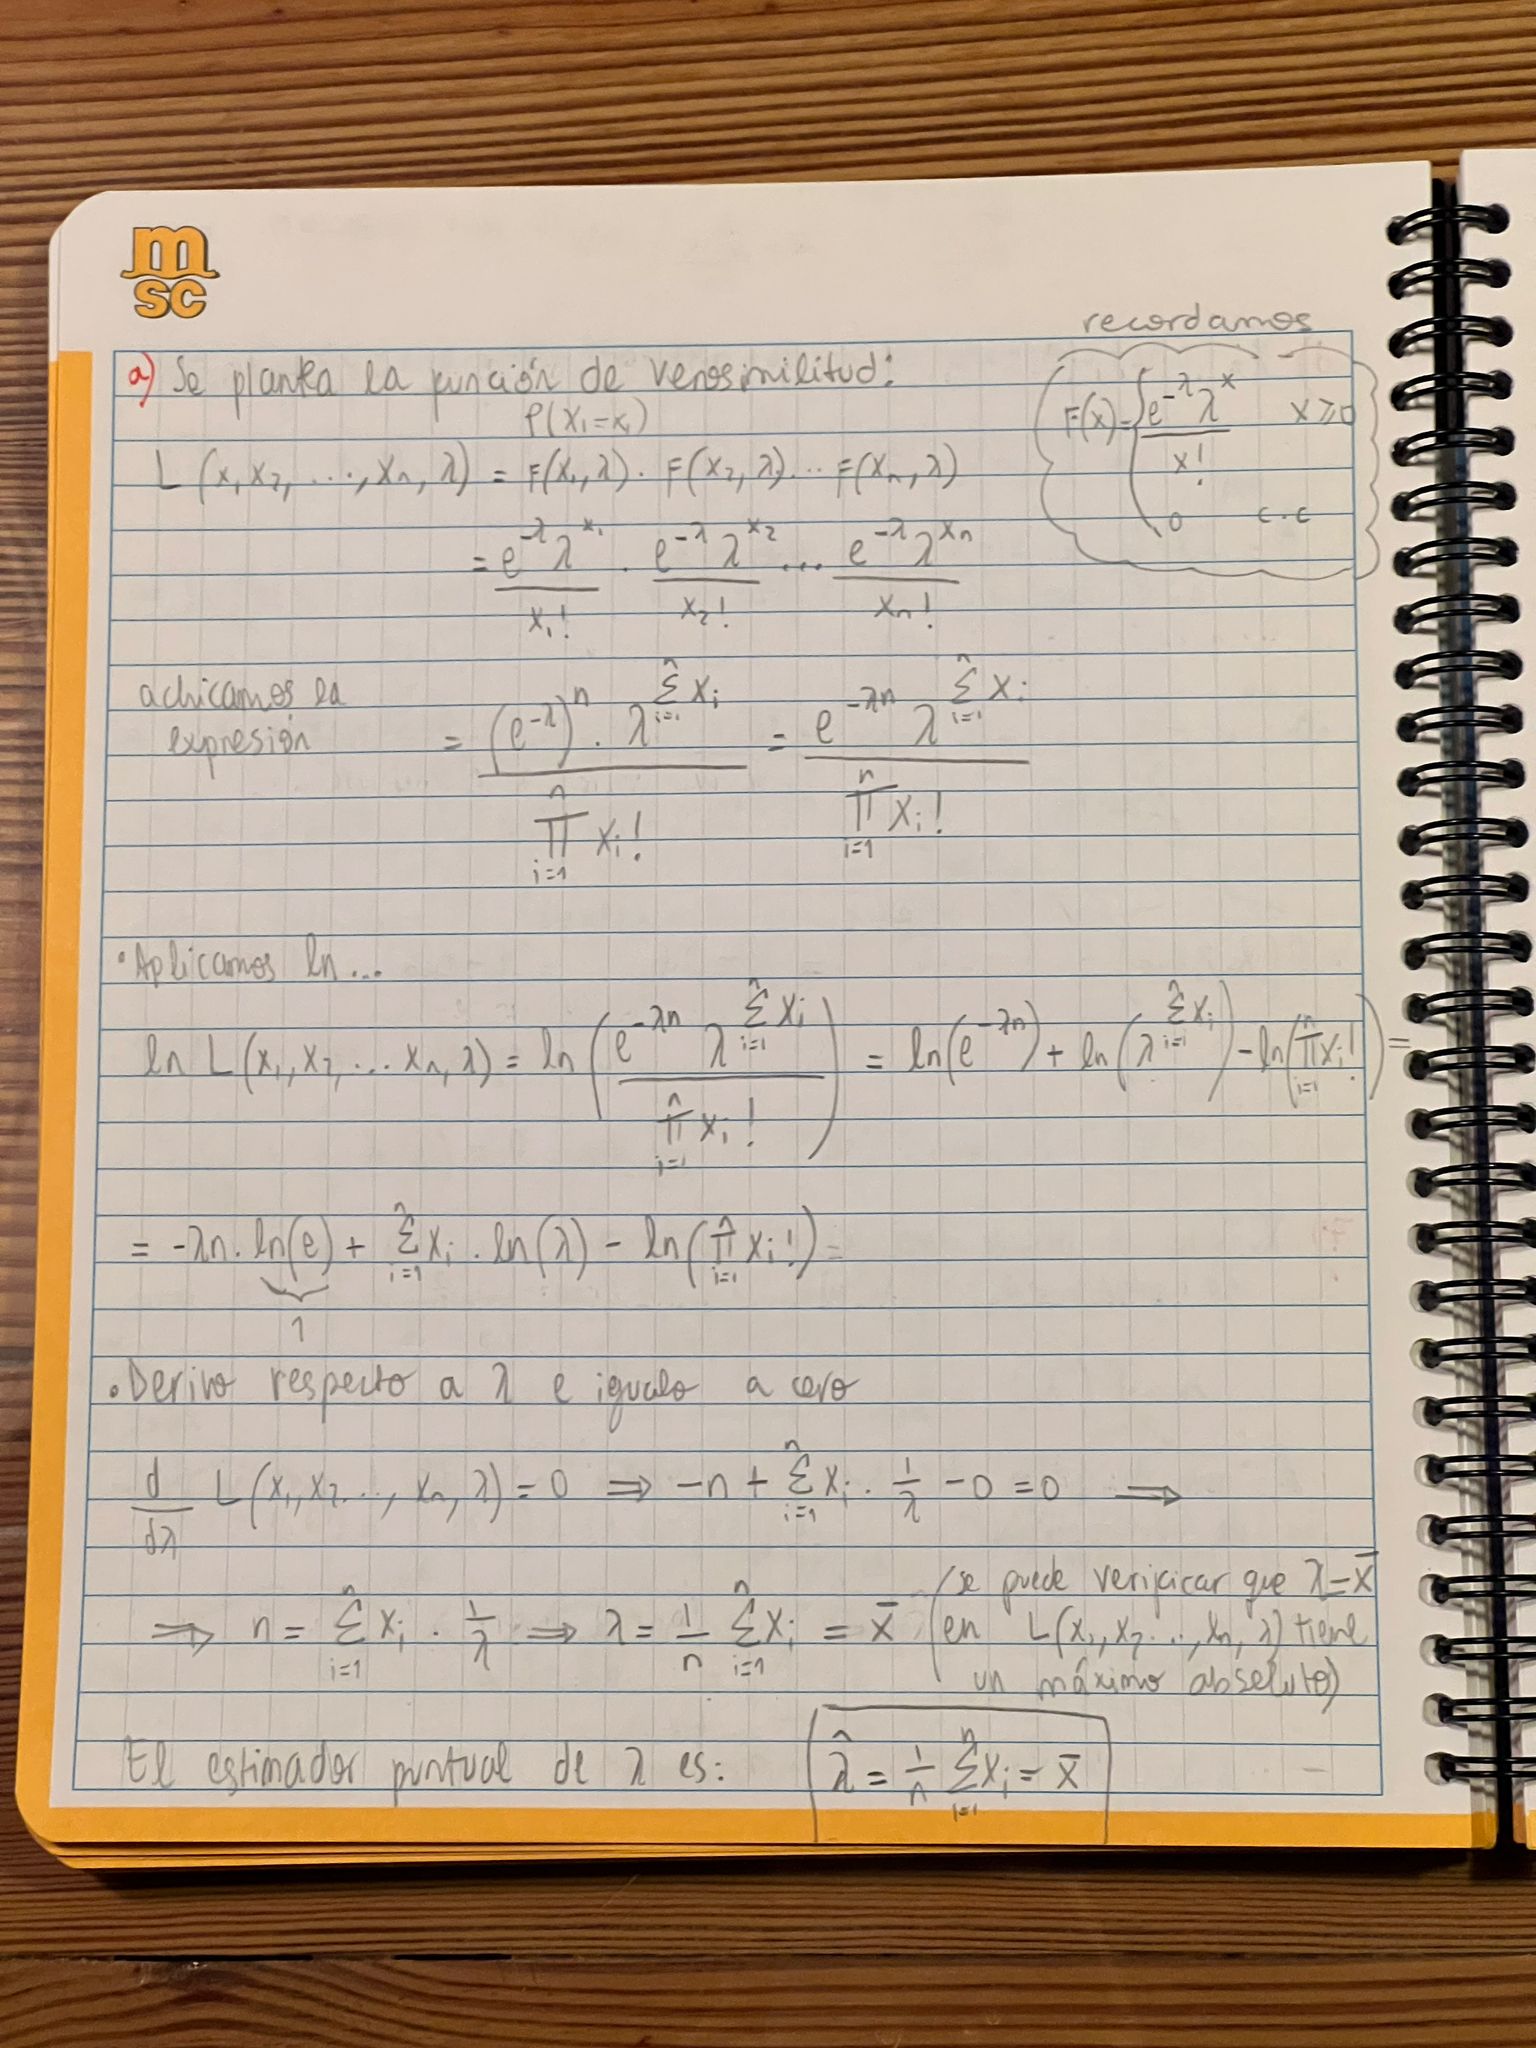 m
sc
recordamos
a) Se plantea la función de verosimilitud:
P(X₁=x₁)
F(x)= { e^{-λ} λ^x / x!   x ≥ 0
0   c.c
L(x₁ x₂, ..., xₙ, λ) = F(x₁, λ) · F(x₂, λ) ... F(xₙ, λ)
= e^{-λ} λ^{x₁} / x₁! · e^{-λ} λ^{x₂} / x₂! ... e^{-λ} λ^{xₙ} / xₙ!
achicamos la
expresión = (e^{-λ})^n · λ^{Σ_{i=1}^n xᵢ} / Π_{i=1}^n xᵢ! = e^{-λn} λ^{Σ_{i=1}^n xᵢ} / Π_{i=1}^n xᵢ!
• Aplicamos ln...
ln L(x₁, x₂, ... xₙ, λ) = ln( e^{-λn} λ^{Σ_{i=1}^n xᵢ} / Π_{i=1}^n xᵢ! ) = ln(e^{-λn}) + ln(λ^{Σ_{i=1}^n xᵢ}) - ln(Π_{i=1}^n xᵢ!) =
= -λn · ln(e) + Σ_{i=1}^n xᵢ · ln(λ) - ln(Π_{i=1}^n xᵢ!) =
1
• Derivo respecto a λ e igualo a cero
d/dλ L(x₁, x₂ ..., xₙ, λ) = 0 ⇒ -n + Σ_{i=1}^n xᵢ · 1/λ - 0 = 0 ⇒
⇒ n = Σ_{i=1}^n xᵢ · 1/λ ⇒ λ = 1/n Σ_{i=1}^n xᵢ = x̄
(se puede verificar que λ = x̄
en L(x₁, x₂ ..., xₙ, λ) tiene
un máximo absoluto)
El estimador puntual de λ es: λ̂ = 1/n Σ_{i=1}^n xᵢ = x̄